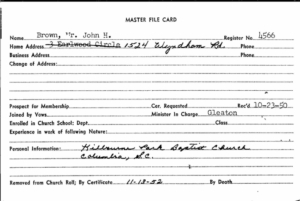 MASTER FILE CARD
Name Brown, Mr. John H. Register No. 4566
Home Address 3 Earlwood Circle 1524 Wyndham Rd. Phone
Business Address Phone
Change of Address:
Prospect for Membership Car. Requested Rec'd 10-23-50
Joined by Vows Minister in Charge Gleaton
Enrolled in Church School: Dept. Class
Experience in work of following Nature:
Personal Information: Kilbourne Park Baptist Church
Columbia, S.C.
Removed from Church Roll; By Certificate 11-18-52 By Death